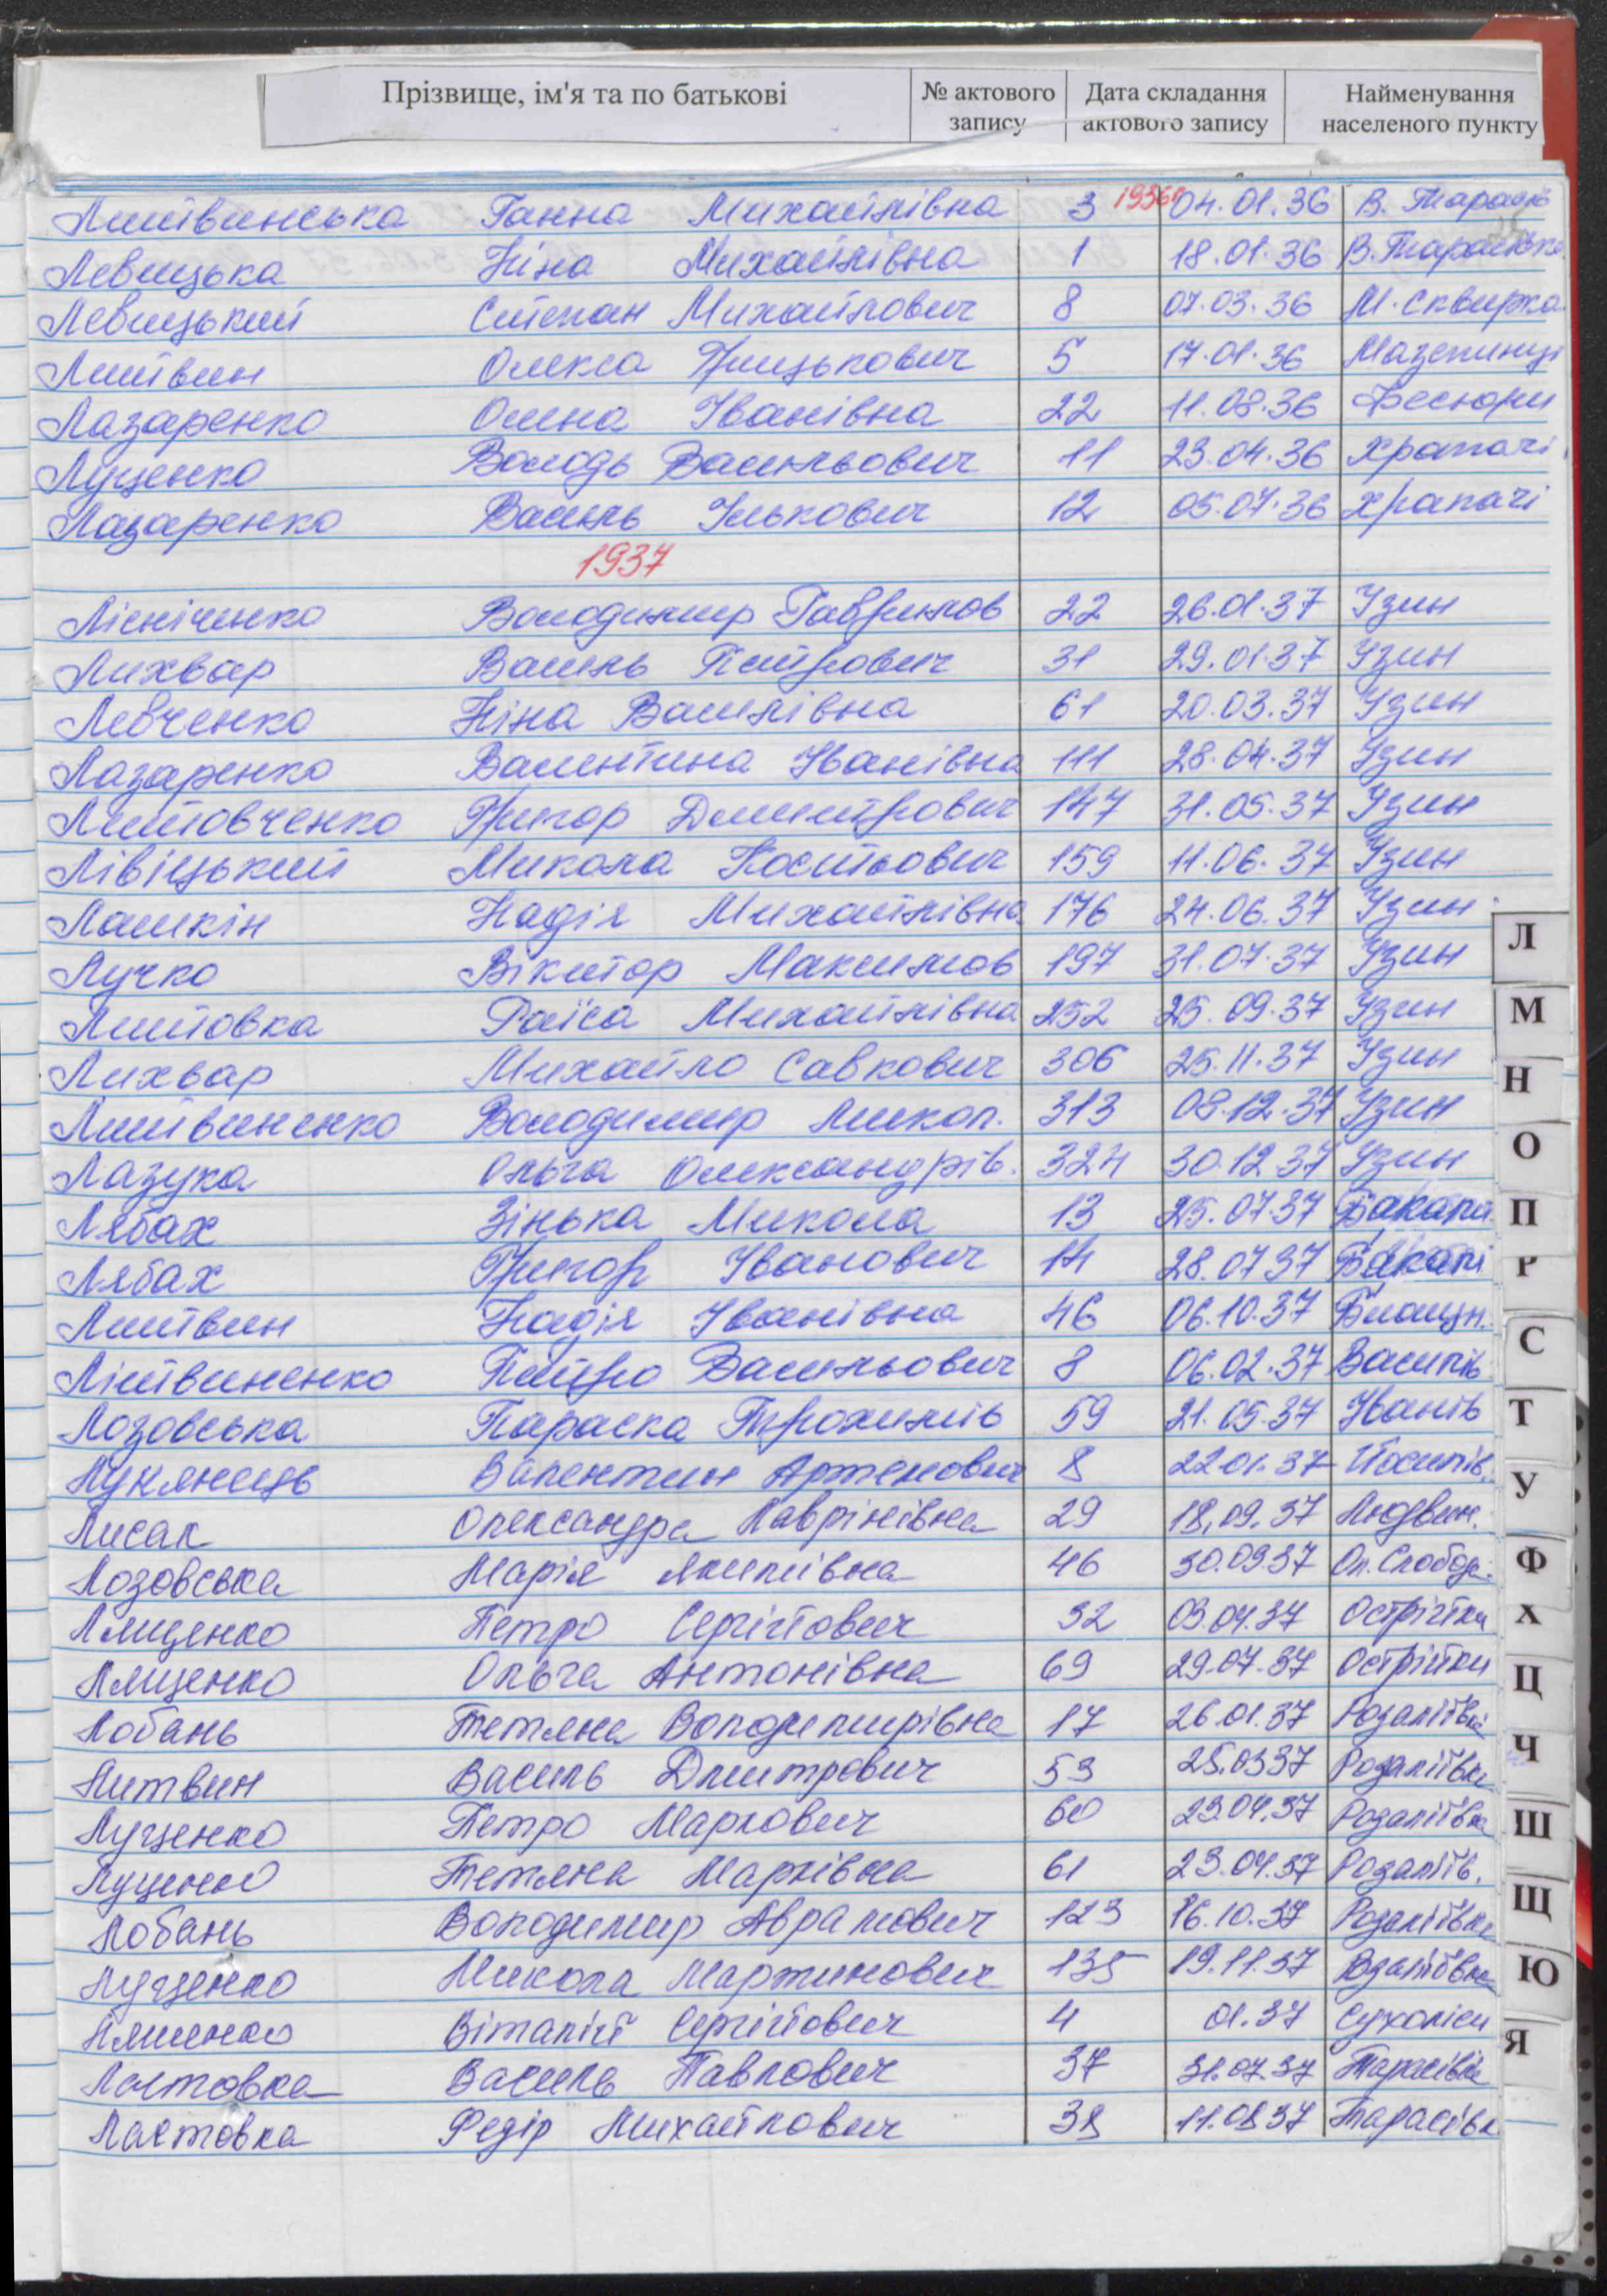 Прізвище, ім'я та по батькові № актового запису Дата складання актового запису Найменування населеного пункту
Литвинська Ганна Михайлівна 3 1936р 04.01.36 В. Тарасів
Левицька Ніна Михайлівна 1 18.01.36 В. Тарасівка
Левицький Степан Михайлович 8 07.03.36 М. Сквирка
Литвин Олекса Грицькович 5 17.01.36 Мазепинці
Лазаренко Олена Іванівна 22 11.08.36 Фесюри
Луценко Володь Васильович 11 23.04.36 Храпачі
Лазаренко Василь Ількович 12 05.07.36 Храпачі
1937
Лісніченко Володимир Гаврилов 22 26.01.37 Узин
Лихвар Василь Петрович 31 29.01.37 Узин
Левченко Ніна Василівна 61 20.03.37 Узин
Лазаренко Валентина Іванівна 111 28.04.37 Узин
Литовченко Григор Дмитрович 147 31.05.37 Узин
Лівіцький Микола Костьович 159 11.06.37 Узин
Лашкін Надія Михайлівна 176 24.06.37 Узин
Лучко Віктор Максимов 197 31.07.37 Узин
Литовка Раїса Михайлівна 252 25.09.37 Узин
Лихвар Михайло Савкович 306 25.11.37 Узин
Литвиненко Володимир Микол. 313 08.12.37 Узин
Лазука Ольга Олександрів. 324 30.12.37 Узин
Лябах Зінька Микола 13 25.07.37
Лябах Григор Іванович 14 28.07.37
Литвин Надія Іванівна 46 06.10.37 Блощин.
Літвиненко Петро Васильович 8 06.02.37 Василів
Лозовська Параска Трохимів 59 21.05.37 Іванів
Лук'янець Валентин Артемович 8 22.01.37 Йосипів.
Лисак Олександра Лаврінівна 29 18.09.37 Людвин.
Лозовська Марія Якимівна 46 30.09.37 Ол. Слобод.
Лященко Петро Сергійович 32 03.04.37 Острійки
Лященко Ольга Антонівна 69 29.07.37 Острійки
Лобань Тетяна Володимирівна 17 26.01.37 Розаліївка
Литвин Василь Дмитрович 53 25.03.37 Розаліївка
Луценко Петро Маркович 60 23.04.37 Розаліївка
Луценко Тетяна Марківна 61 23.04.37 Розаліїв.
Лобань Володимир Аврамович 123 16.10.37 Розаліївка
Луценко Микола Мартинович 135 19.11.37 Розаліївка
Ляшенко Віталій Сергійович 4 01.37 Сухоліси
Ластовка Василь Павлович 37 31.07.37 Тарасівка
Ластовка Федір Михайлович 38 11.08.37 Тарасівк
Л
М
Н
О
П
Р
С
Т
У
Ф
Х
Ц
Ч
Ш
Щ
Ю
Я